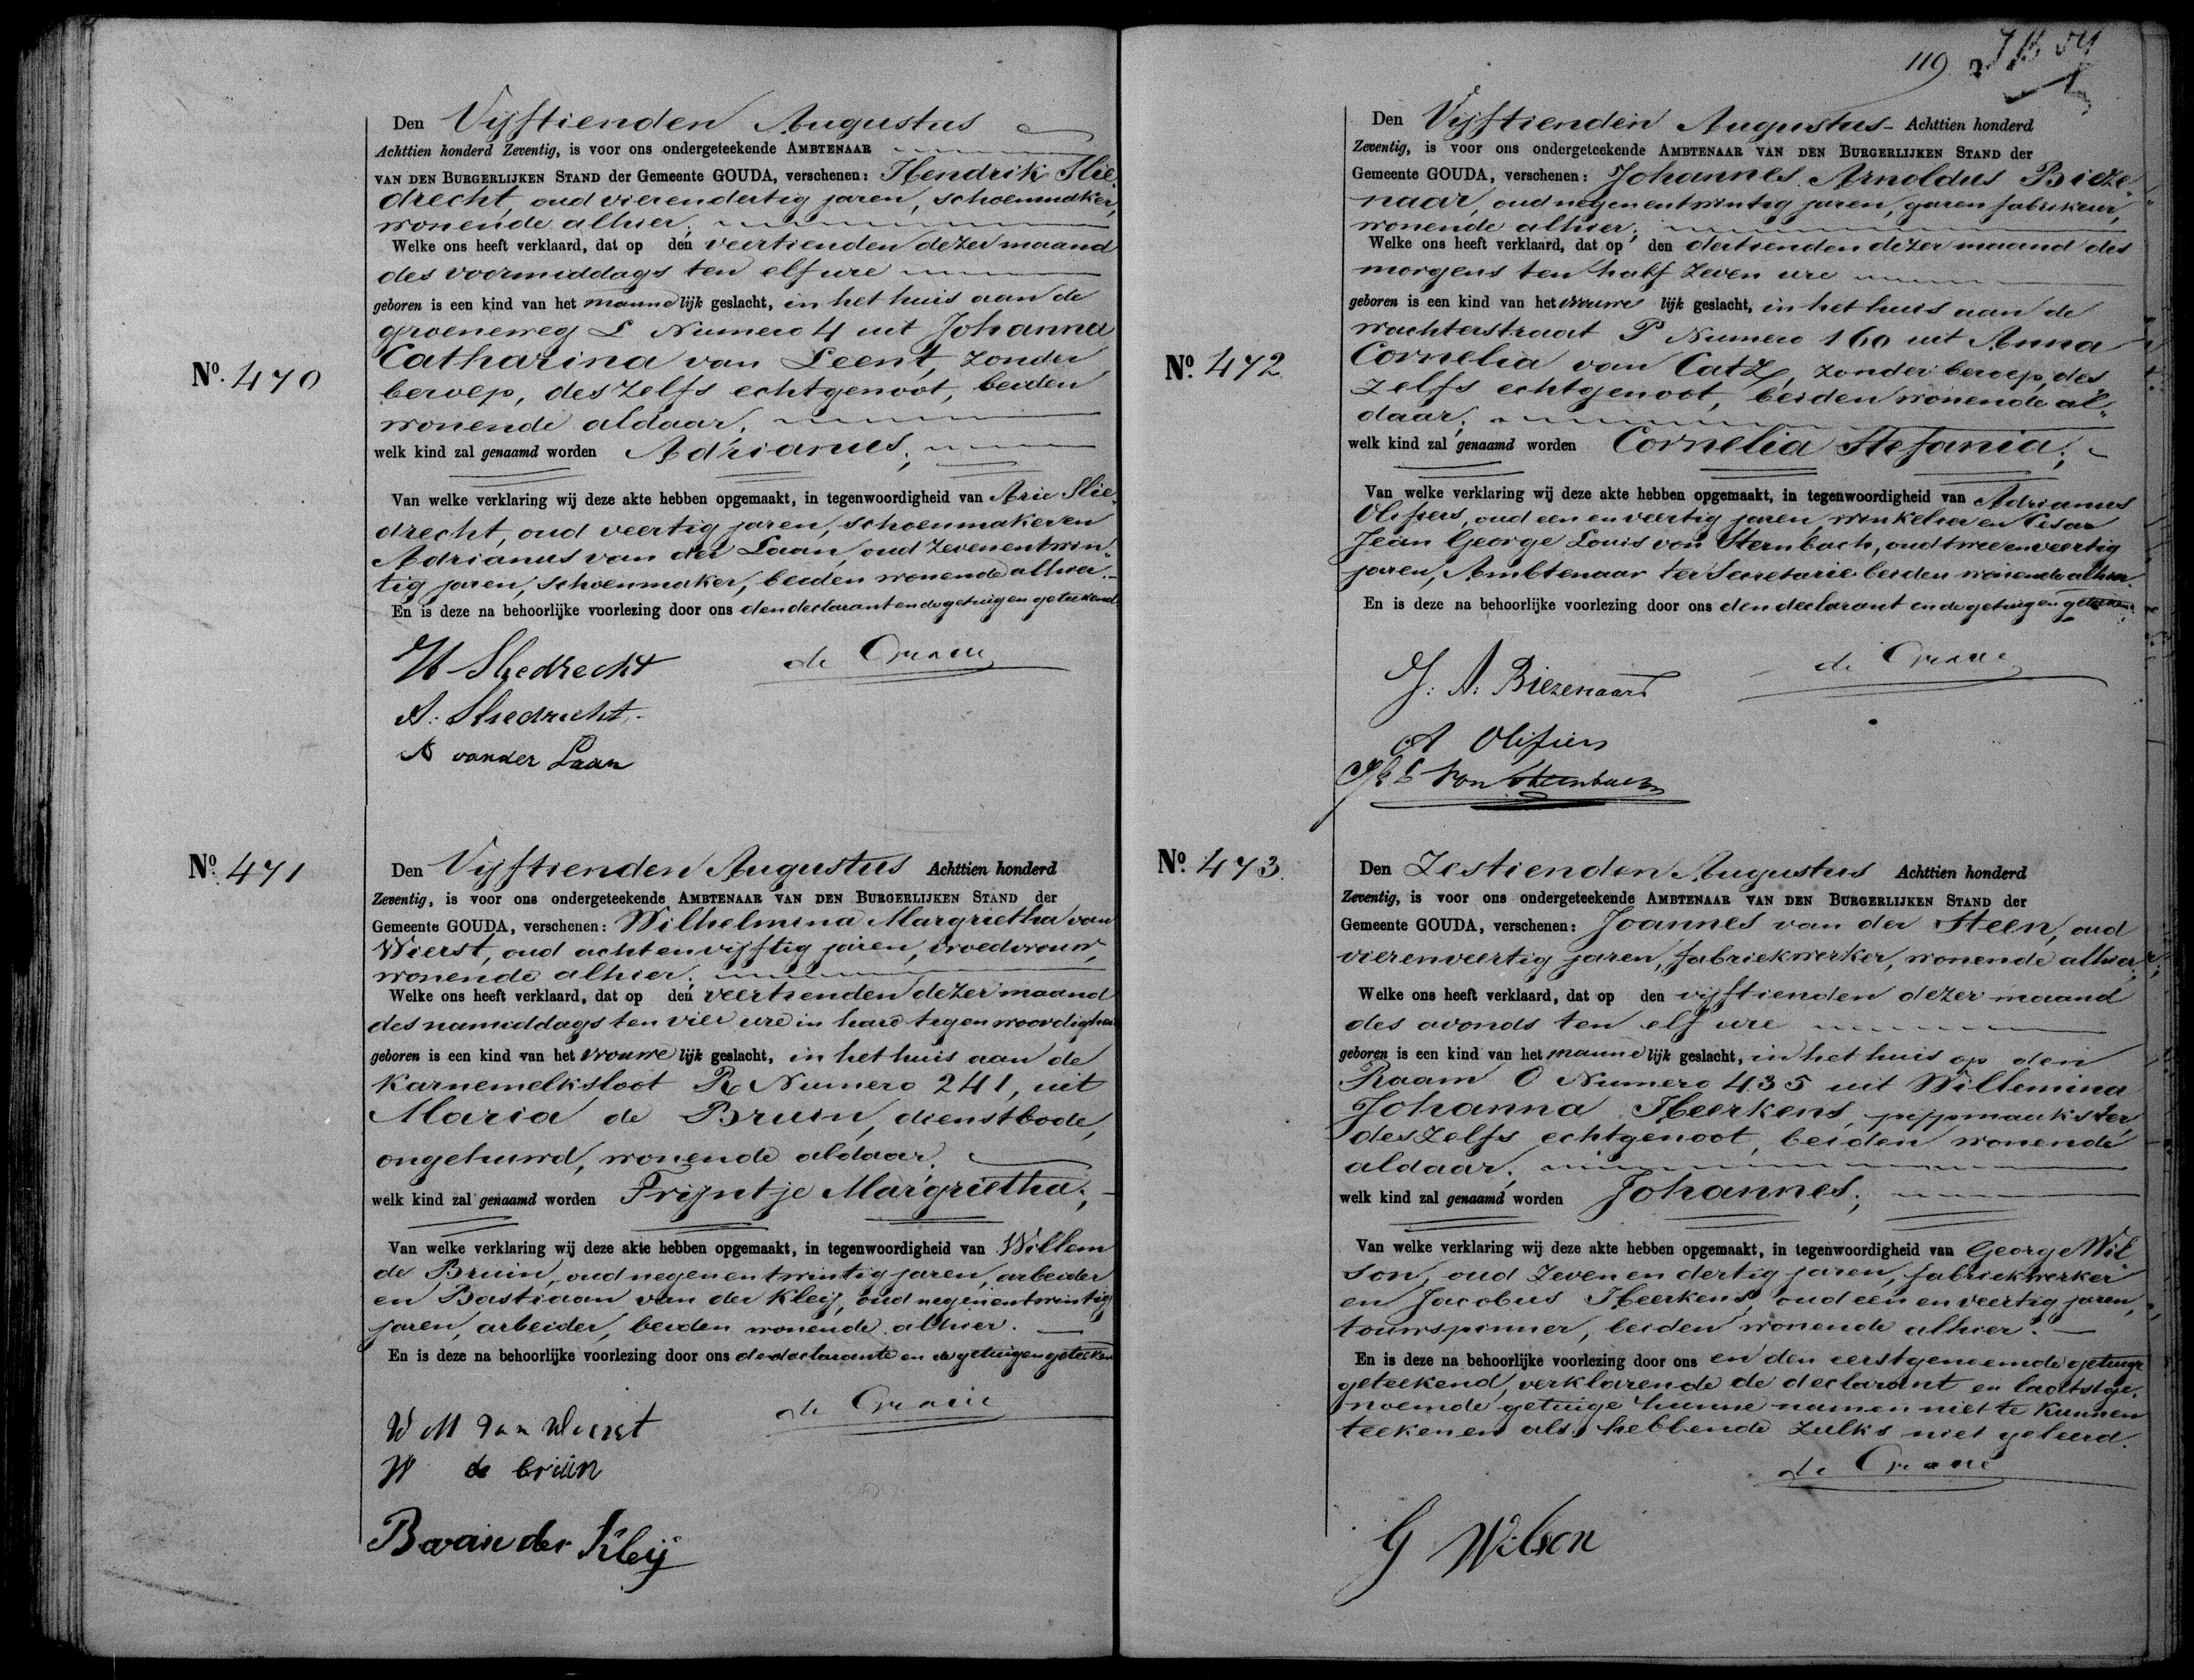 Den Vijftienden Augustus
Achttien honderd Zeventig, is voor ons ondergeteekende AMBTENAAR
VAN DEN BURGERLIJKEN STAND der Gemeente GOUDA, verschenen: Hendrik Slie„
drecht, oud vierendertig jaren, schoenmaker,
wonende alhier;
Welke ons heeft verklaard, dat op den veertienden dezer maand
des voormiddags ten elf ure
geboren is een kind van het mannelijk geslacht, in het huis aan de
groeneweg L Numero 4 uit Johanna
Catharina van Leent, zonder
No. 470
beroep, deszelfs echtgenoot, beiden
wonende aldaar;
welk kind zal genaamd worden Adrianus;
Van welke verklaring wij deze akte hebben opgemaakt, in tegenwoordigheid van Arie Slie„
drecht, oud veertig jaren, schoenmaker en
Adrianus van der Laan, oud zevenentwin„
tig jaren, schoenmaker, beiden wonende alhier.
En is deze na behoorlijke voorlezing door ons den declarant en de getuigen geteekend.
H Sliedrecht de Grave
A. Sliedrecht.
A van der Laan
No. 471
Den Vijftienden Augustus Achttien honderd
Zeventig, is voor ons ondergeteekende AMBTENAAR VAN DEN BURGERLIJKEN STAND der
Gemeente GOUDA, verschenen: Wilhelmina Margrietha van
Wierst, oud achtenvijftig jaren, vroedvrouw,
wonende alhier;
Welke ons heeft verklaard, dat op den veertienden dezer maand
des namiddags ten vier ure in hare tegenwoordigheid
geboren is een kind van het vrouwelijk geslacht, in het huis aan de
Karnemelksloot R Numero 241, uit
Maria de Bruin, dienstbode,
ongehuwd, wonende aldaar;
welk kind zal genaamd worden Trijntje Margrietha;
Van welke verklaring wij deze akte hebben opgemaakt, in tegenwoordigheid van Willem
de Bruin, oud negenentwintig jaren, arbeider
en Bastiaan van der Kleij, oud negenentwintig
jaren, arbeider, beiden wonende alhier.
En is deze na behoorlijke voorlezing door ons de declarante en de getuigen geteeken
W M van Wierst de Grave
W de bruin
B van der Kleij
119
Den Vijftienden Augustus Achttien honderd
Zeventig, is voor ons ondergeteekende AMBTENAAR VAN DEN BURGERLIJKEN STAND der
Gemeente GOUDA, verschenen: Johannes Arnoldus Bieze„
naar, oud negenentwintig jaren, garenfabrikeur,
wonende alhier;
Welke ons heeft verklaard, dat op den dertienden dezer maand des
morgens ten half zeven ure
geboren is een kind van het vrouwelijk geslacht, in het huis aan de
wachterstraat P Numero 160 uit Anna
No. 472.
Cornelia van Catz, zonder beroep, des„
zelfs echtgenoot, beiden wonende al„
daar;
welk kind zal genaamd worden Cornelia Stefania;
Van welke verklaring wij deze akte hebben opgemaakt, in tegenwoordigheid van Adrianus
Olifiers, oud een en veertig jaren, winkelier en Cesar
Jean George Louis von Sternbach, oud tweeenveertig
jaren, Ambtenaar ter Secretarie beiden wonende alhier.
En is deze na behoorlijke voorlezing door ons den declarant en de getuigen geteekend.
J. A. Biezenaar de Grave
A Olifiers
von Sternbach
No. 473.
Den Zestienden Augustus Achttien honderd
Zeventig, is voor ons ondergeteekende AMBTENAAR VAN DEN BURGERLIJKEN STAND der
Gemeente GOUDA, verschenen: Joannes van der Steen, oud
vierenveertig jaren, fabriekwerker, wonende alhier;
Welke ons heeft verklaard, dat op den vijftienden dezer maand
des avonds ten elf ure
geboren is een kind van het mannelijk geslacht, in het huis op den
Raam O Numero 435 uit Willemina
Johanna Heerkens, pijpmaakster,
deszelfs echtgenoot, beiden wonende
aldaar;
welk kind zal genaamd worden Johannes;
Van welke verklaring wij deze akte hebben opgemaakt, in tegenwoordigheid van George Wil„
son, oud zeven en dertig jaren, fabriekwerker
en Jacobus Heerkens, oud een en veertig jaren,
touwspinner, beiden wonende alhier.
En is deze na behoorlijke voorlezing door ons en den eerstgenoemde getuige
geteekend, verklarende de declarant en laatstge„
noemde getuige hunne namen niet te kunnen
teekenen als hebbende zulks niet geleerd.
de Grave
G Wilson